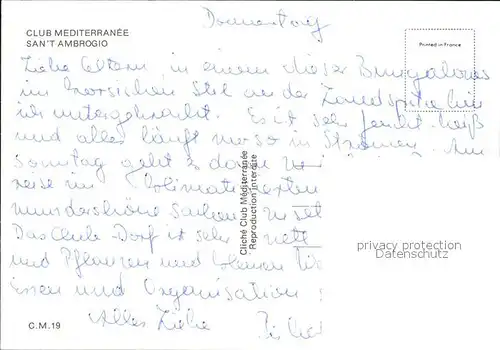 CLUB MEDITERRANÉE
SAN'T AMBROGIO
Donnerstag
Printed in France
Liebe Eltern, in einem dieser Bungalows
im korsischen Stil an der Landspitze hier
wir untergebracht. Es ist sehr feucht-heiß
und alles läuft nur so in Strömen. Am
Sonntag geht es dann
reise im
wunderschöne Sachen zu
Das Club-Dorf ist sehr nett
und Pflanzen und Blumen
Essen und Organisation
Alles Liebe
Cliché Club Méditerranée
Reproduction interdite
privacy protection
Datenschutz
C.M.19